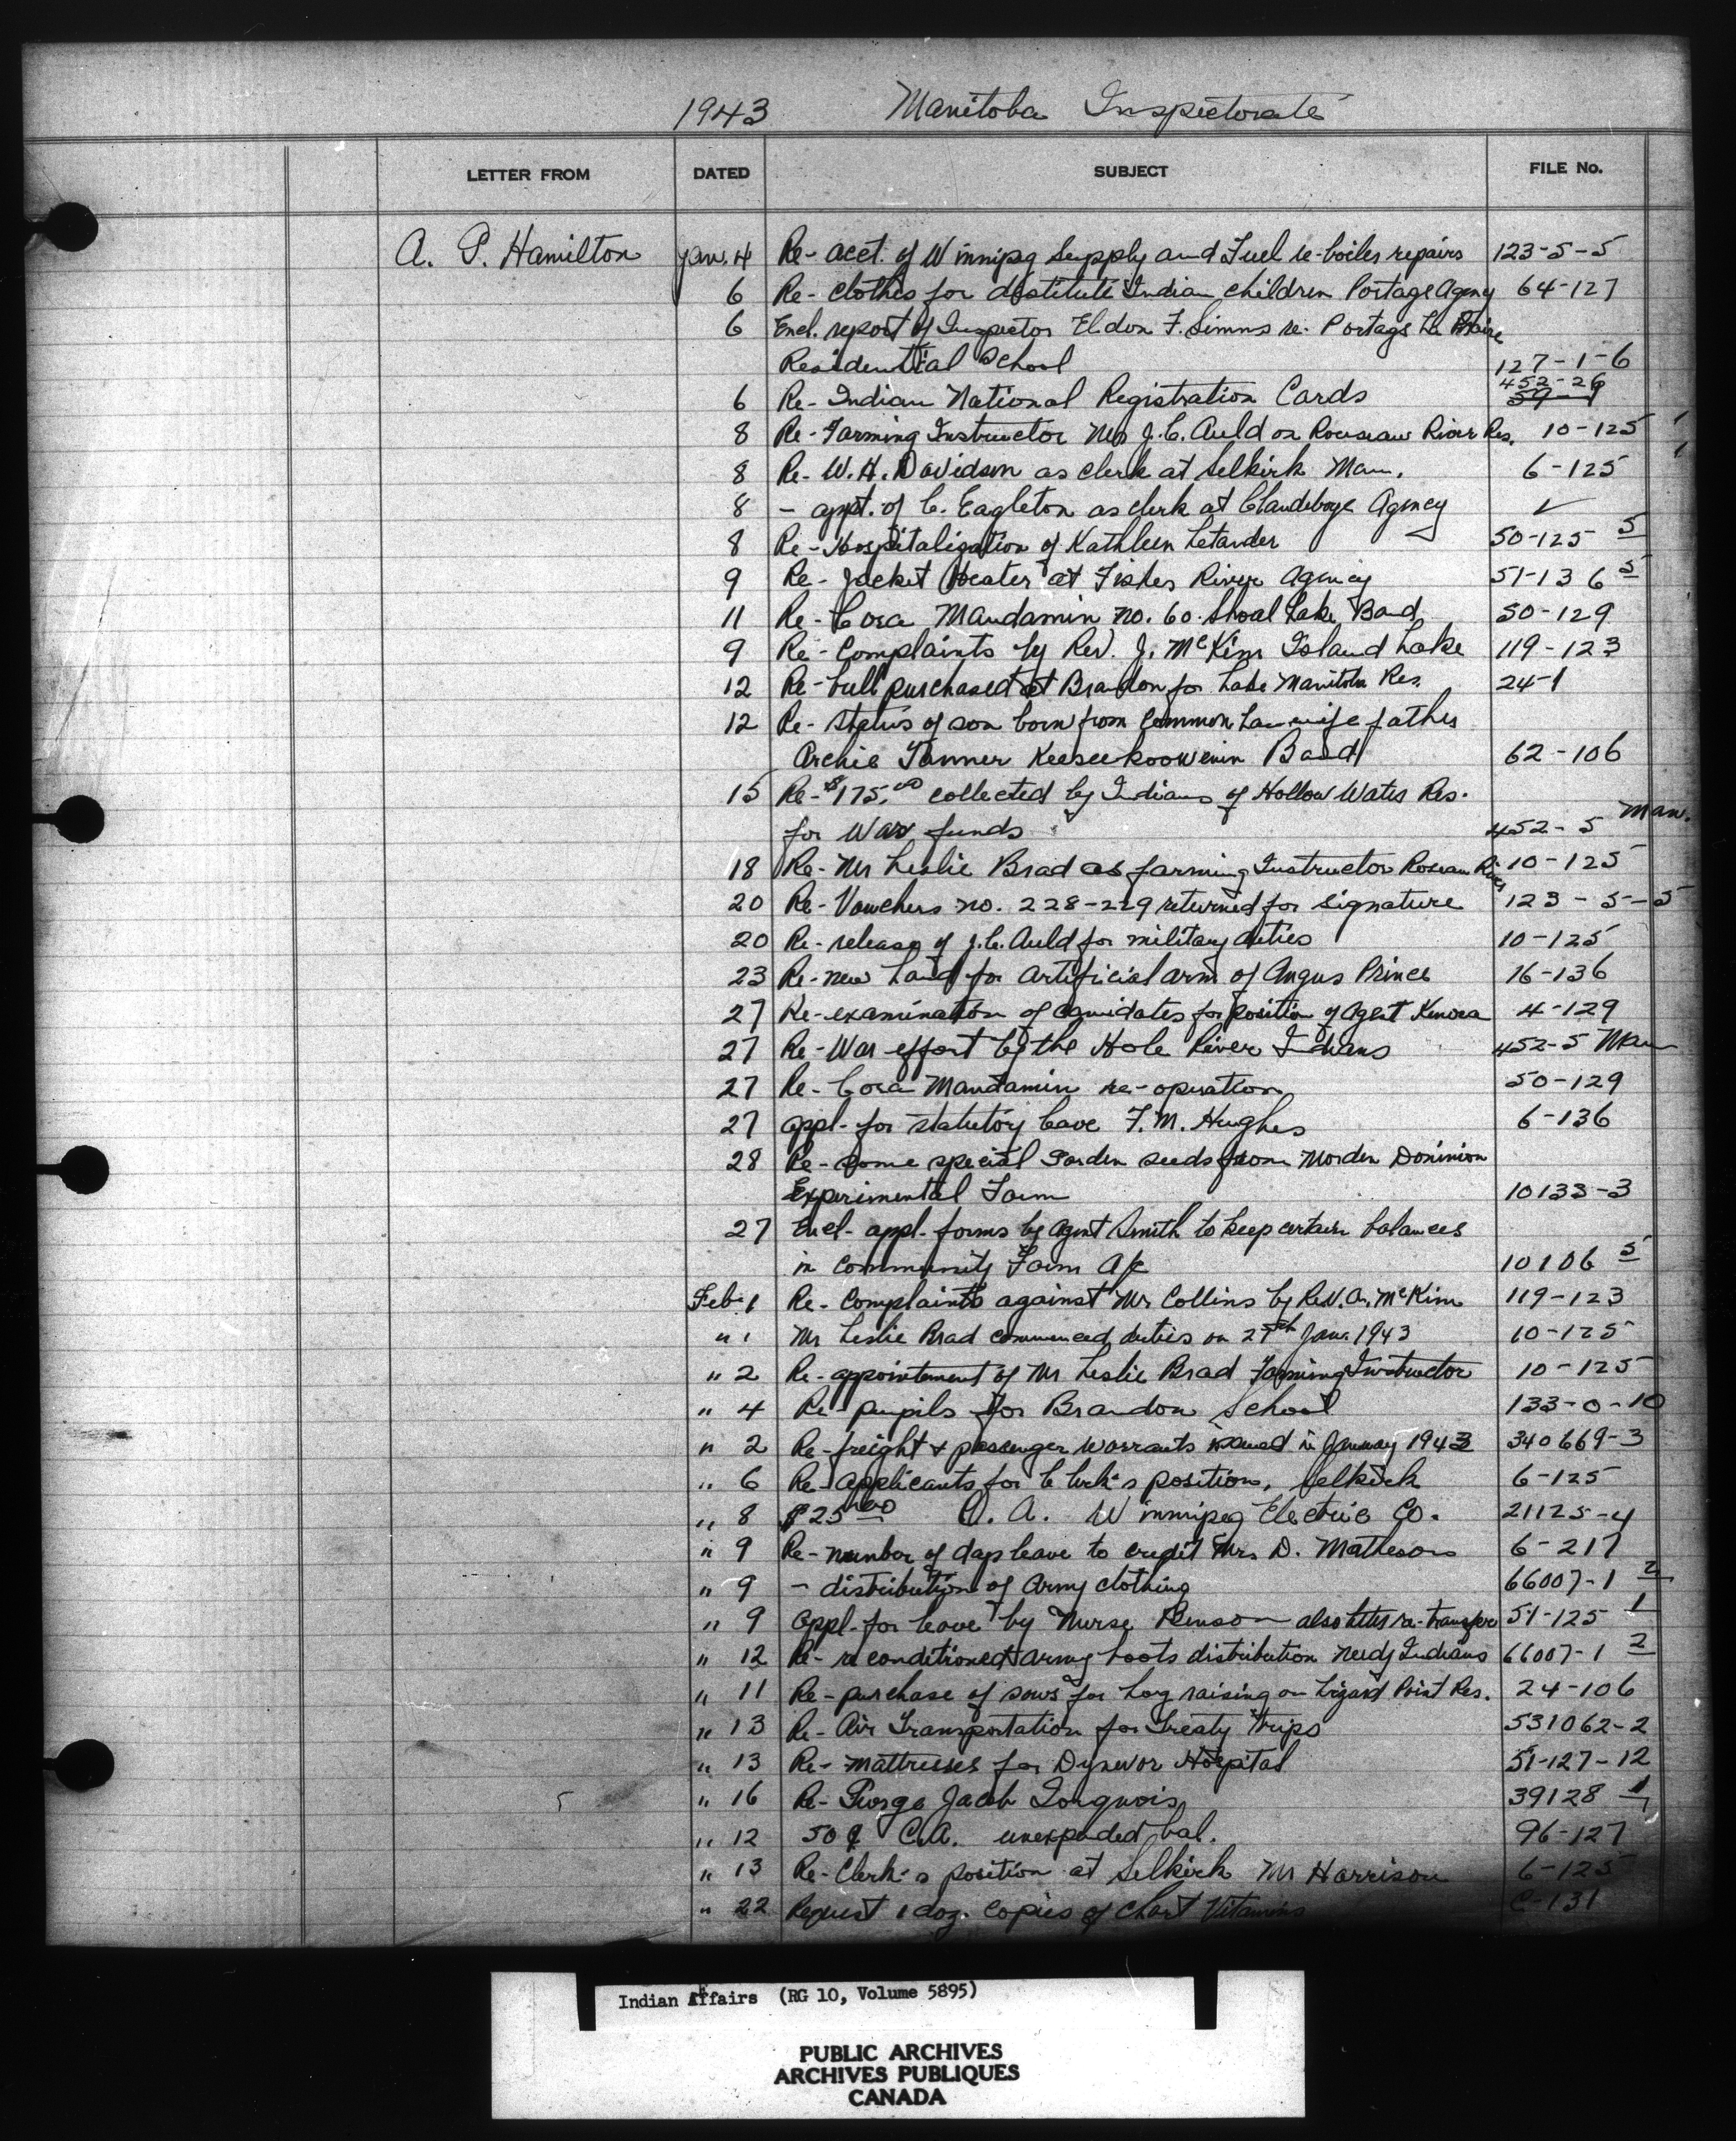 1943 Manitoba Inspectorate
LETTER FROM DATED SUBJECT FILE No.
A. P. Hamilton Jan. 4 Re- acct. of Winnipeg Supply and Fuel re-boiler repairs 123-5-5
6 Re- clothes for destitute Indian children Portage Agency 64-127
6 Encl. report of Inspector Eldon F. Simms re. Portage La Prairie
Residential School 127-1-6
452-26
6 Re- Indian National Registration Cards 59-9
8 Re- Farming Instructor Mr J.C. Auld on Rouseau River Res. 10-125
8 Re- W.H. Davidson as clerk at Selkirk Man. 6-125
8 - appt. of C. Eagleton as clerk at Clandeboye Agency ✓
8 Re- Hospitalization of Kathleen Letander 50-125 5
9 Re- Jacket Heater at Fisher River Agency 51-136 5
11 Re- Cora Mandamin no. 60. Shoal Lake Band 50-129
9 Re- Complaints by Rev. J. McKim Island Lake 119-123
12 Re- bull purchased at Brandon for Lake Manitoba Res. 24-1
12 Re- status of son born from Common Law wife father
Archie Tanner Keeseekoowenin Band 62-106
15 Re- $175.00 collected by Indians of Hollow Water Res.
for War funds 452-5 Man.
18 Re- Mr Leslie Brad as farming Instructor Roseau River 10-125
20 Re- Vouchers no. 228-229 returned for signature 123-5-5
20 Re- release of J.C. Auld for military duties 10-125
23 Re- new hand for artificial arm of Angus Prince 16-136
27 Re- examination of canidates for position of Agent Kenora 4-129
27 Re- War effort by the Hole River Indians 452-5 Man
27 Re- Cora Mandamin re-operation 50-129
27 appl- for statutory leave F.M. Hughes 6-136
28 Re- some special Garden seeds from Morden Dominion
Experimental Farm 10133-3
27 Encl- appl- forms by Agent Smith to keep certain balances
in community Farm A/c 10106 5
Feb. 1 Re- Complaints against Mr Collins by Rev. A. McKim 119-123
" 1 Mr Leslie Brad commenced duties on 27th Jan. 1943 10-125
" 2 Re- appointement of Mr Leslie Brad Farming Instructor 10-125
" 4 Re- pupils for Brandon School 133-0-10
" 2 Re- freight & passenger warrants issued in January 1943 340669-3
" 6 Re- applicants for Clerk's position, Selkirk 6-125
" 8 $25 00 O. A. Winnipeg Electric Co. 21125-4
" 9 Re- number of days leave to credit Mrs D. Matheson 6-217
" 9 - distribution of Army clothing 66007-1 2
" 9 appl- for leave by Nurse Benson also letter re-transfer 51-125 1
" 12 Re- reconditioned Army boots distribution needy Indians 66007-1 2
" 11 Re- purchase of sows for hog raising on Lizard Point Res. 24-106
" 13 Re- Air Transportation for Treaty trips 531062-2
" 13 Re- Mattresses for Dynevor Hospital 51-127-12
" 16 Re- George Jacob 39128-1
" 12 50¢ C.A. unexpended bal. 96-127
" 13 Re- Clerk's position at Selkirk Mr Harrison 6-125
" 22 Request 1 doz. Copies of Chart Vitamins C-131
Indian Affairs (RG 10, Volume 5895)
PUBLIC ARCHIVES
ARCHIVES PUBLIQUES
CANADA